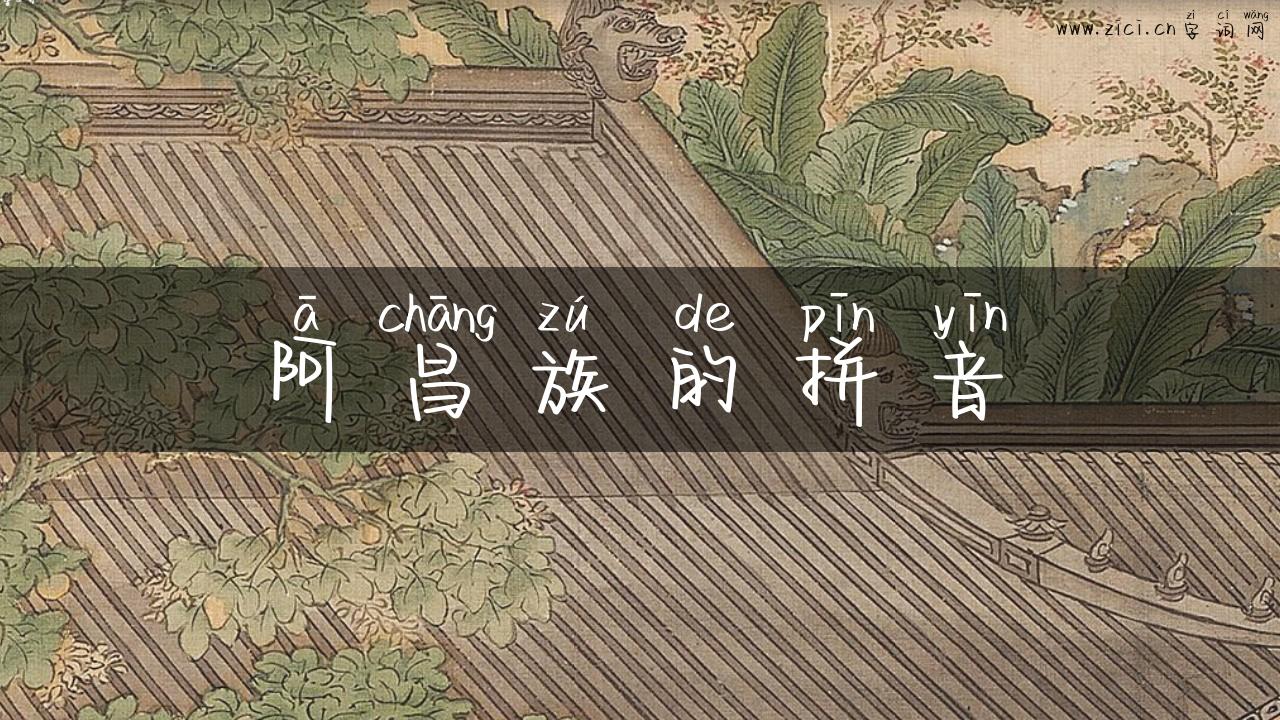 zì cí wǎng
www.zici.cn 字词网
ā chāng zú de pīn yīn
阿昌族的拼音